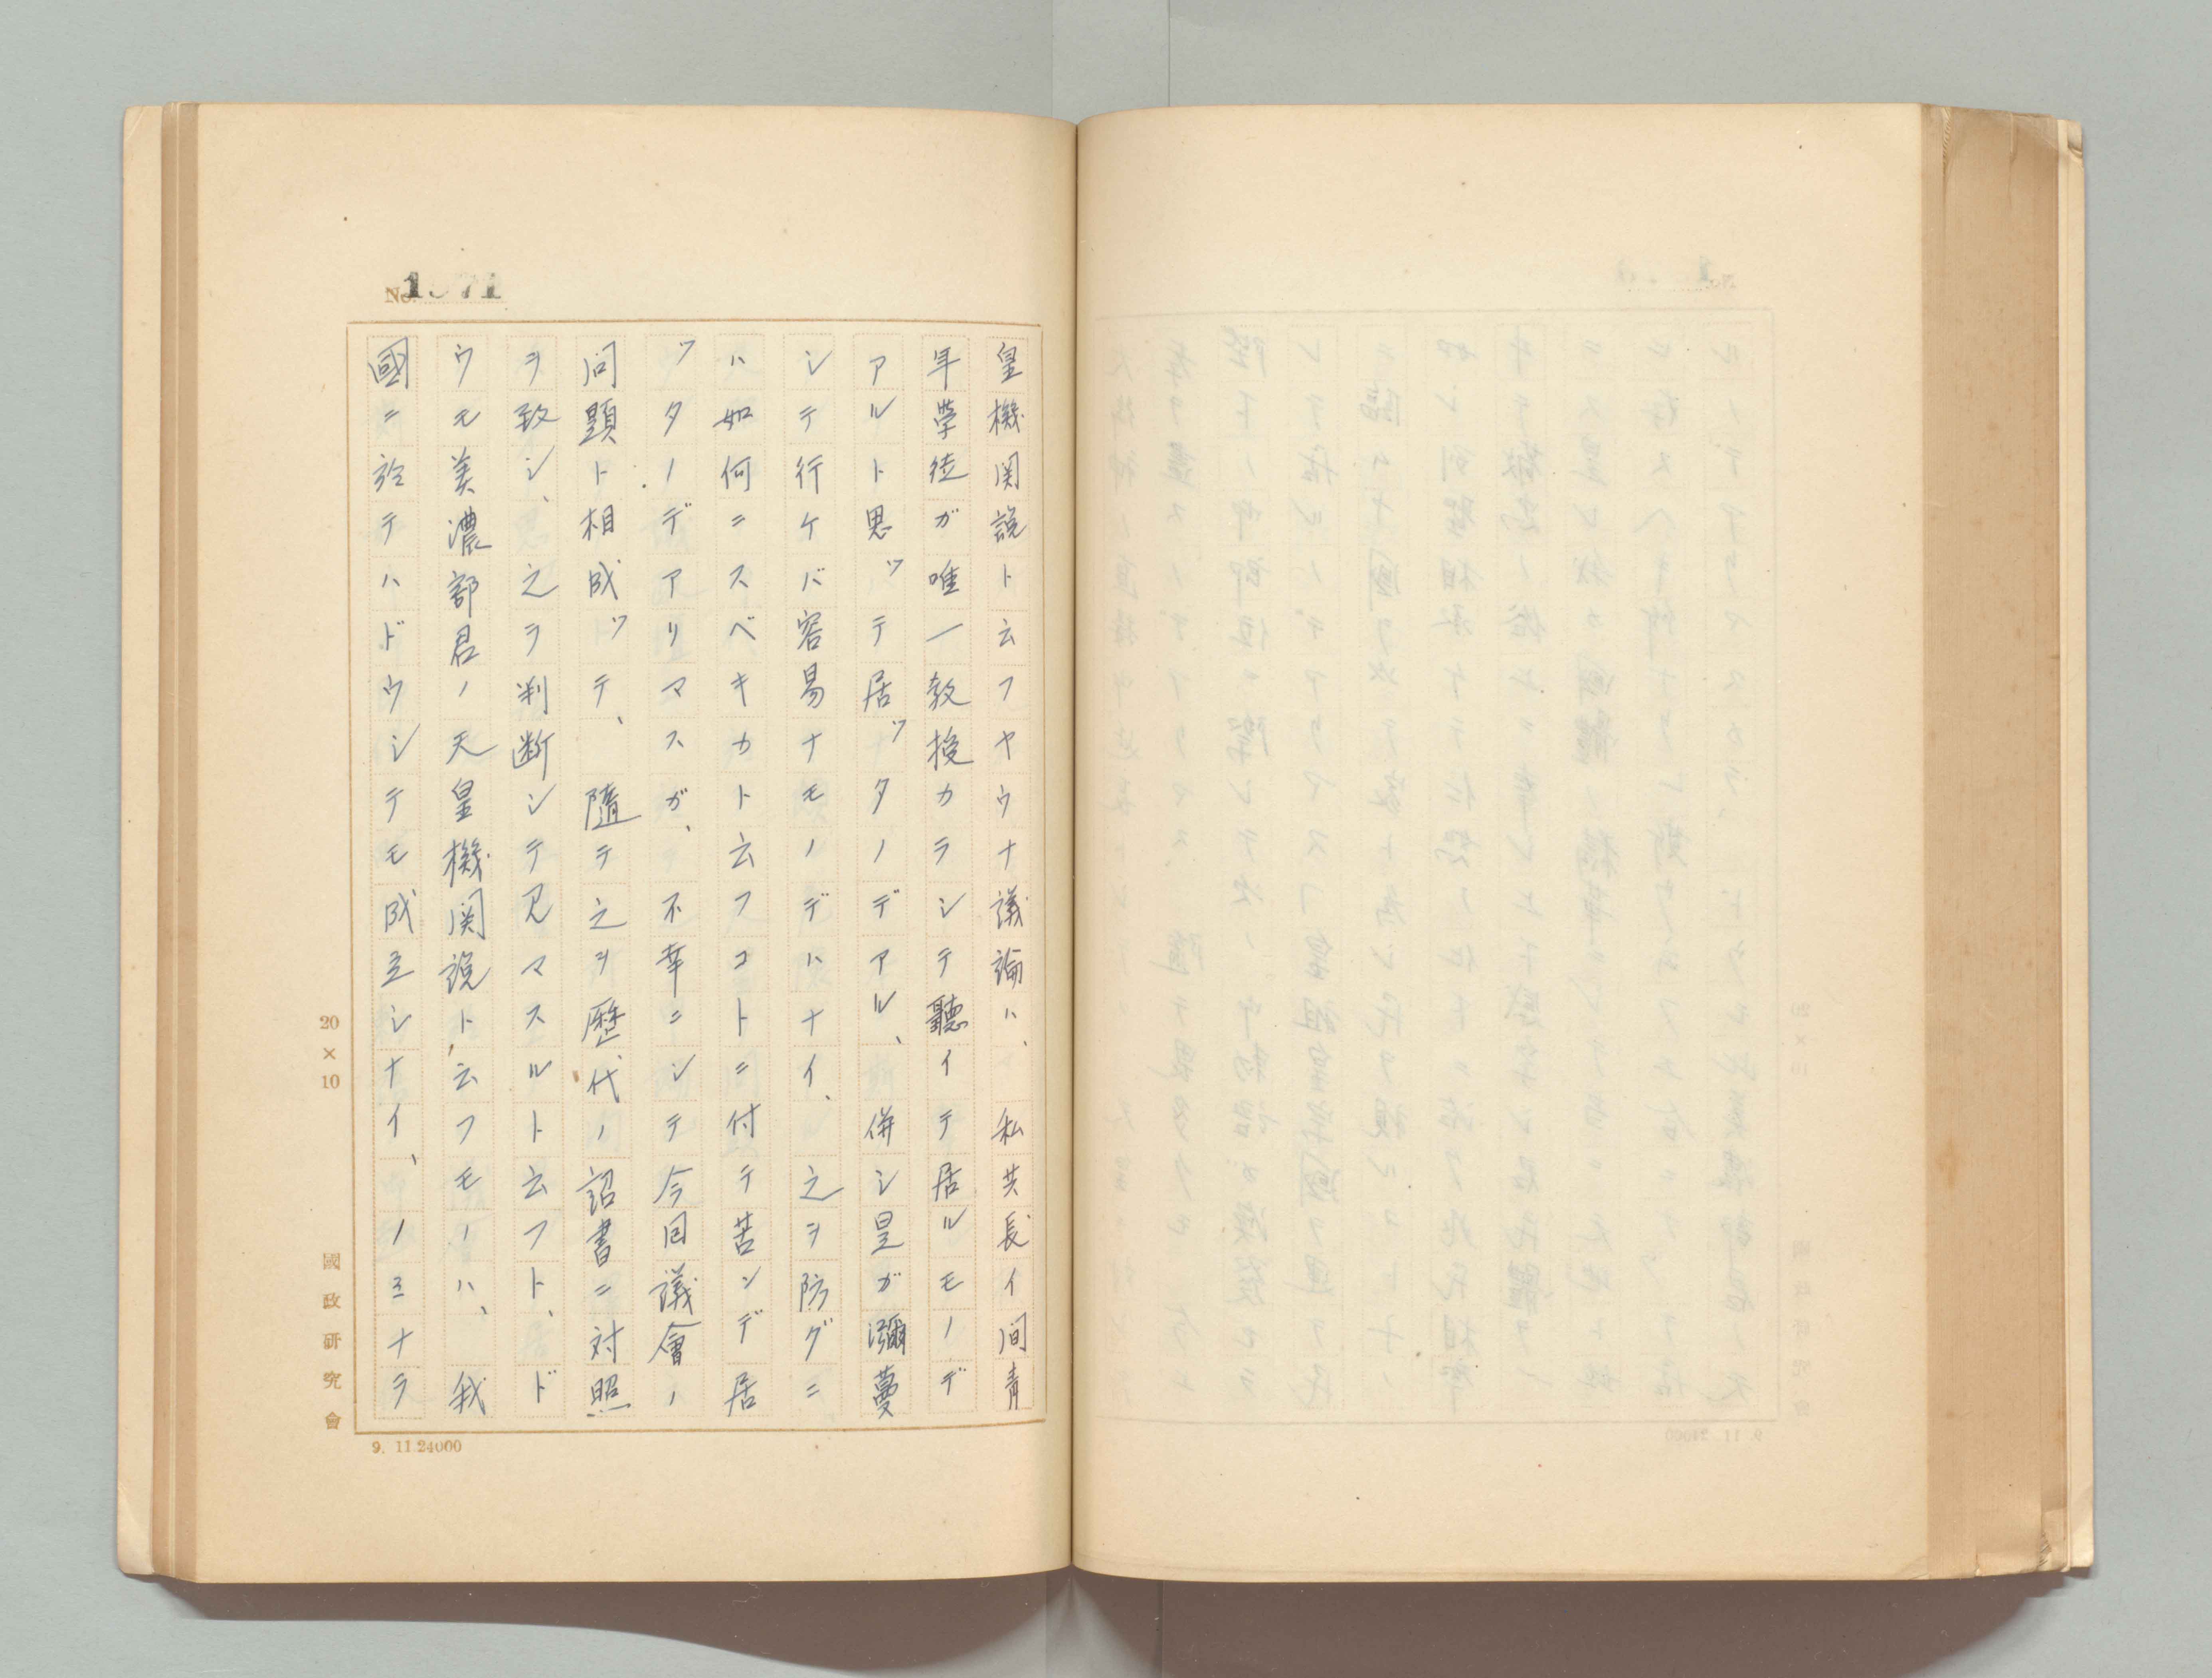 No. 1571
皇機関説ト云フヤウナ議論ハ、私共長イ间青
年學徒ガ唯一教授カラシテ聽イテ居ルモノデ
アルト思ッテ居ッタノデアル、併シ是ガ瀰蔓
シテ行ケバ容易ナモノデハナイ、之ヲ防グニ
ハ如何ニスベキカト云フコトニ付テ苦ンデ居
ッタノデアリマスガ、不幸ニシテ今回議會ノ
问題ト相成ッテ、隨テ之ヲ歷代ノ詔書ニ対照
ヲ致シ、之ヲ判断シテ見マスルト云フト、ド
ウモ美濃部君ノ天皇機関説ト云フモノハ、我
國ニ於テハドウシテモ成立シナイ、ノミナラ
20×10
國政研究會
9. 11.24000